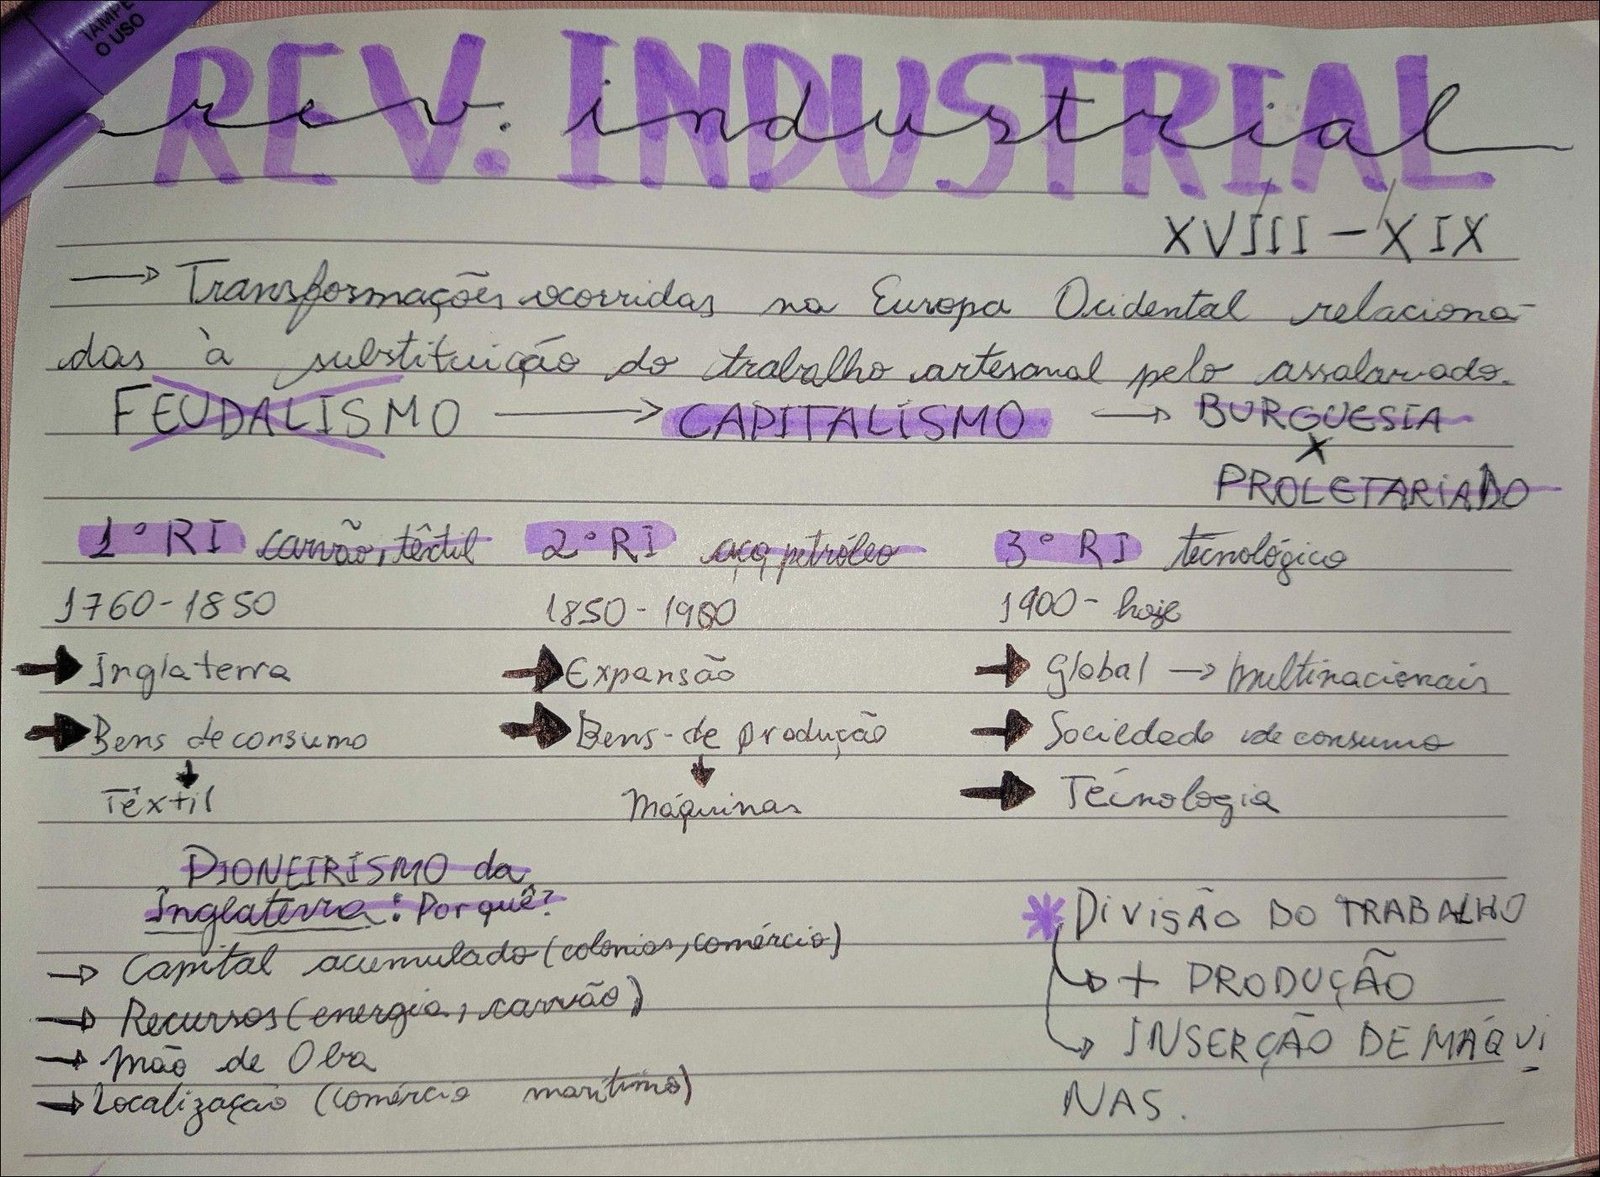 TAMPE
O USO
REV. INDUSTRIAL
rev. industrial
XVIII - XIX
→ Transformações ocorridas na Europa Ocidental relaciona-
das à substituição do trabalho artesanal pelo assalariado.
FEUDALISMO → CAPITALISMO → BURGUESIA
X
PROLETARIADO
1° RI carvão, têxtil 2° RI aço, petróleo 3° RI técnológico
1760-1850 1850-1900 1900- hoje
→ Inglaterra → Expansão → Global → multinacionais
→ Bens de consumo → Bens-de produção → Sociedade de consumo
↓ ↓ → Técnologia
Têxtil máquinas
PIONEIRISMO da
Inglaterra: Por quê?
→ Capital acumulado (colonias, comércio)
→ Recursos (energia, carvão)
→ mão de Obra
→ Localização (comércio marítimo)
* DIVISÃO DO TRABALHO
→ + PRODUÇÃO
→ INSERÇÃO DE MÁQUI
NAS.